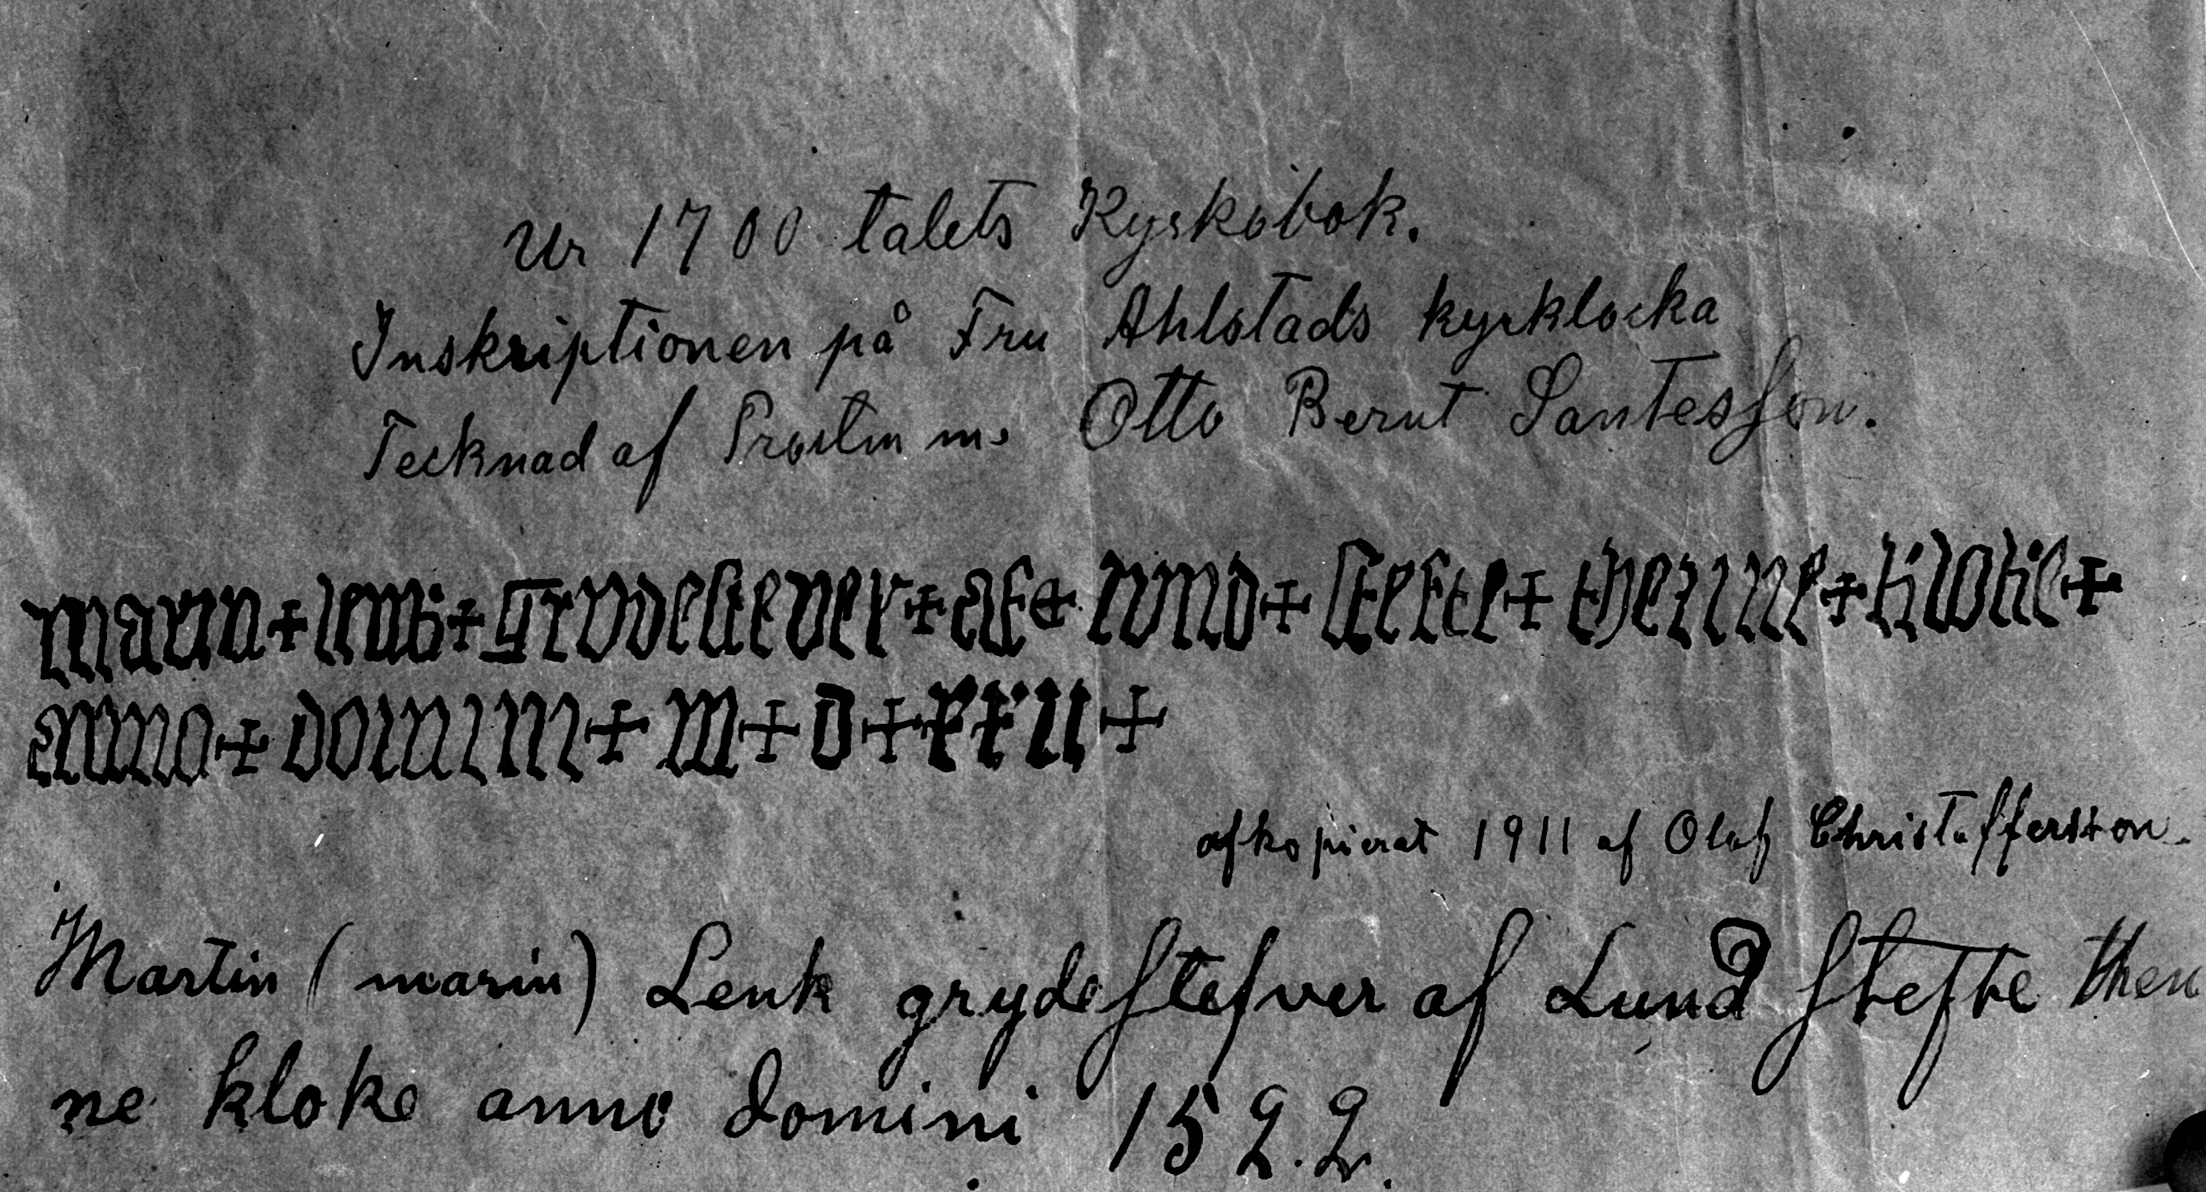 Ur 1700 talets Kyrkobok.
Inskriptionen på Fru Ahlstads kyrklocka
Tecknad af Prosten m. Otto Bernt Santesson.
marin + lenk + grydestever + af + lund + stefte + thenne + kloke +
anno + domini + m + d + xxii +
afkopierat 1911 af Olof Christoffersson.
Martin (marin) Lenk grydestefver af Lund stefte then
ne kloke anno domini 1522.